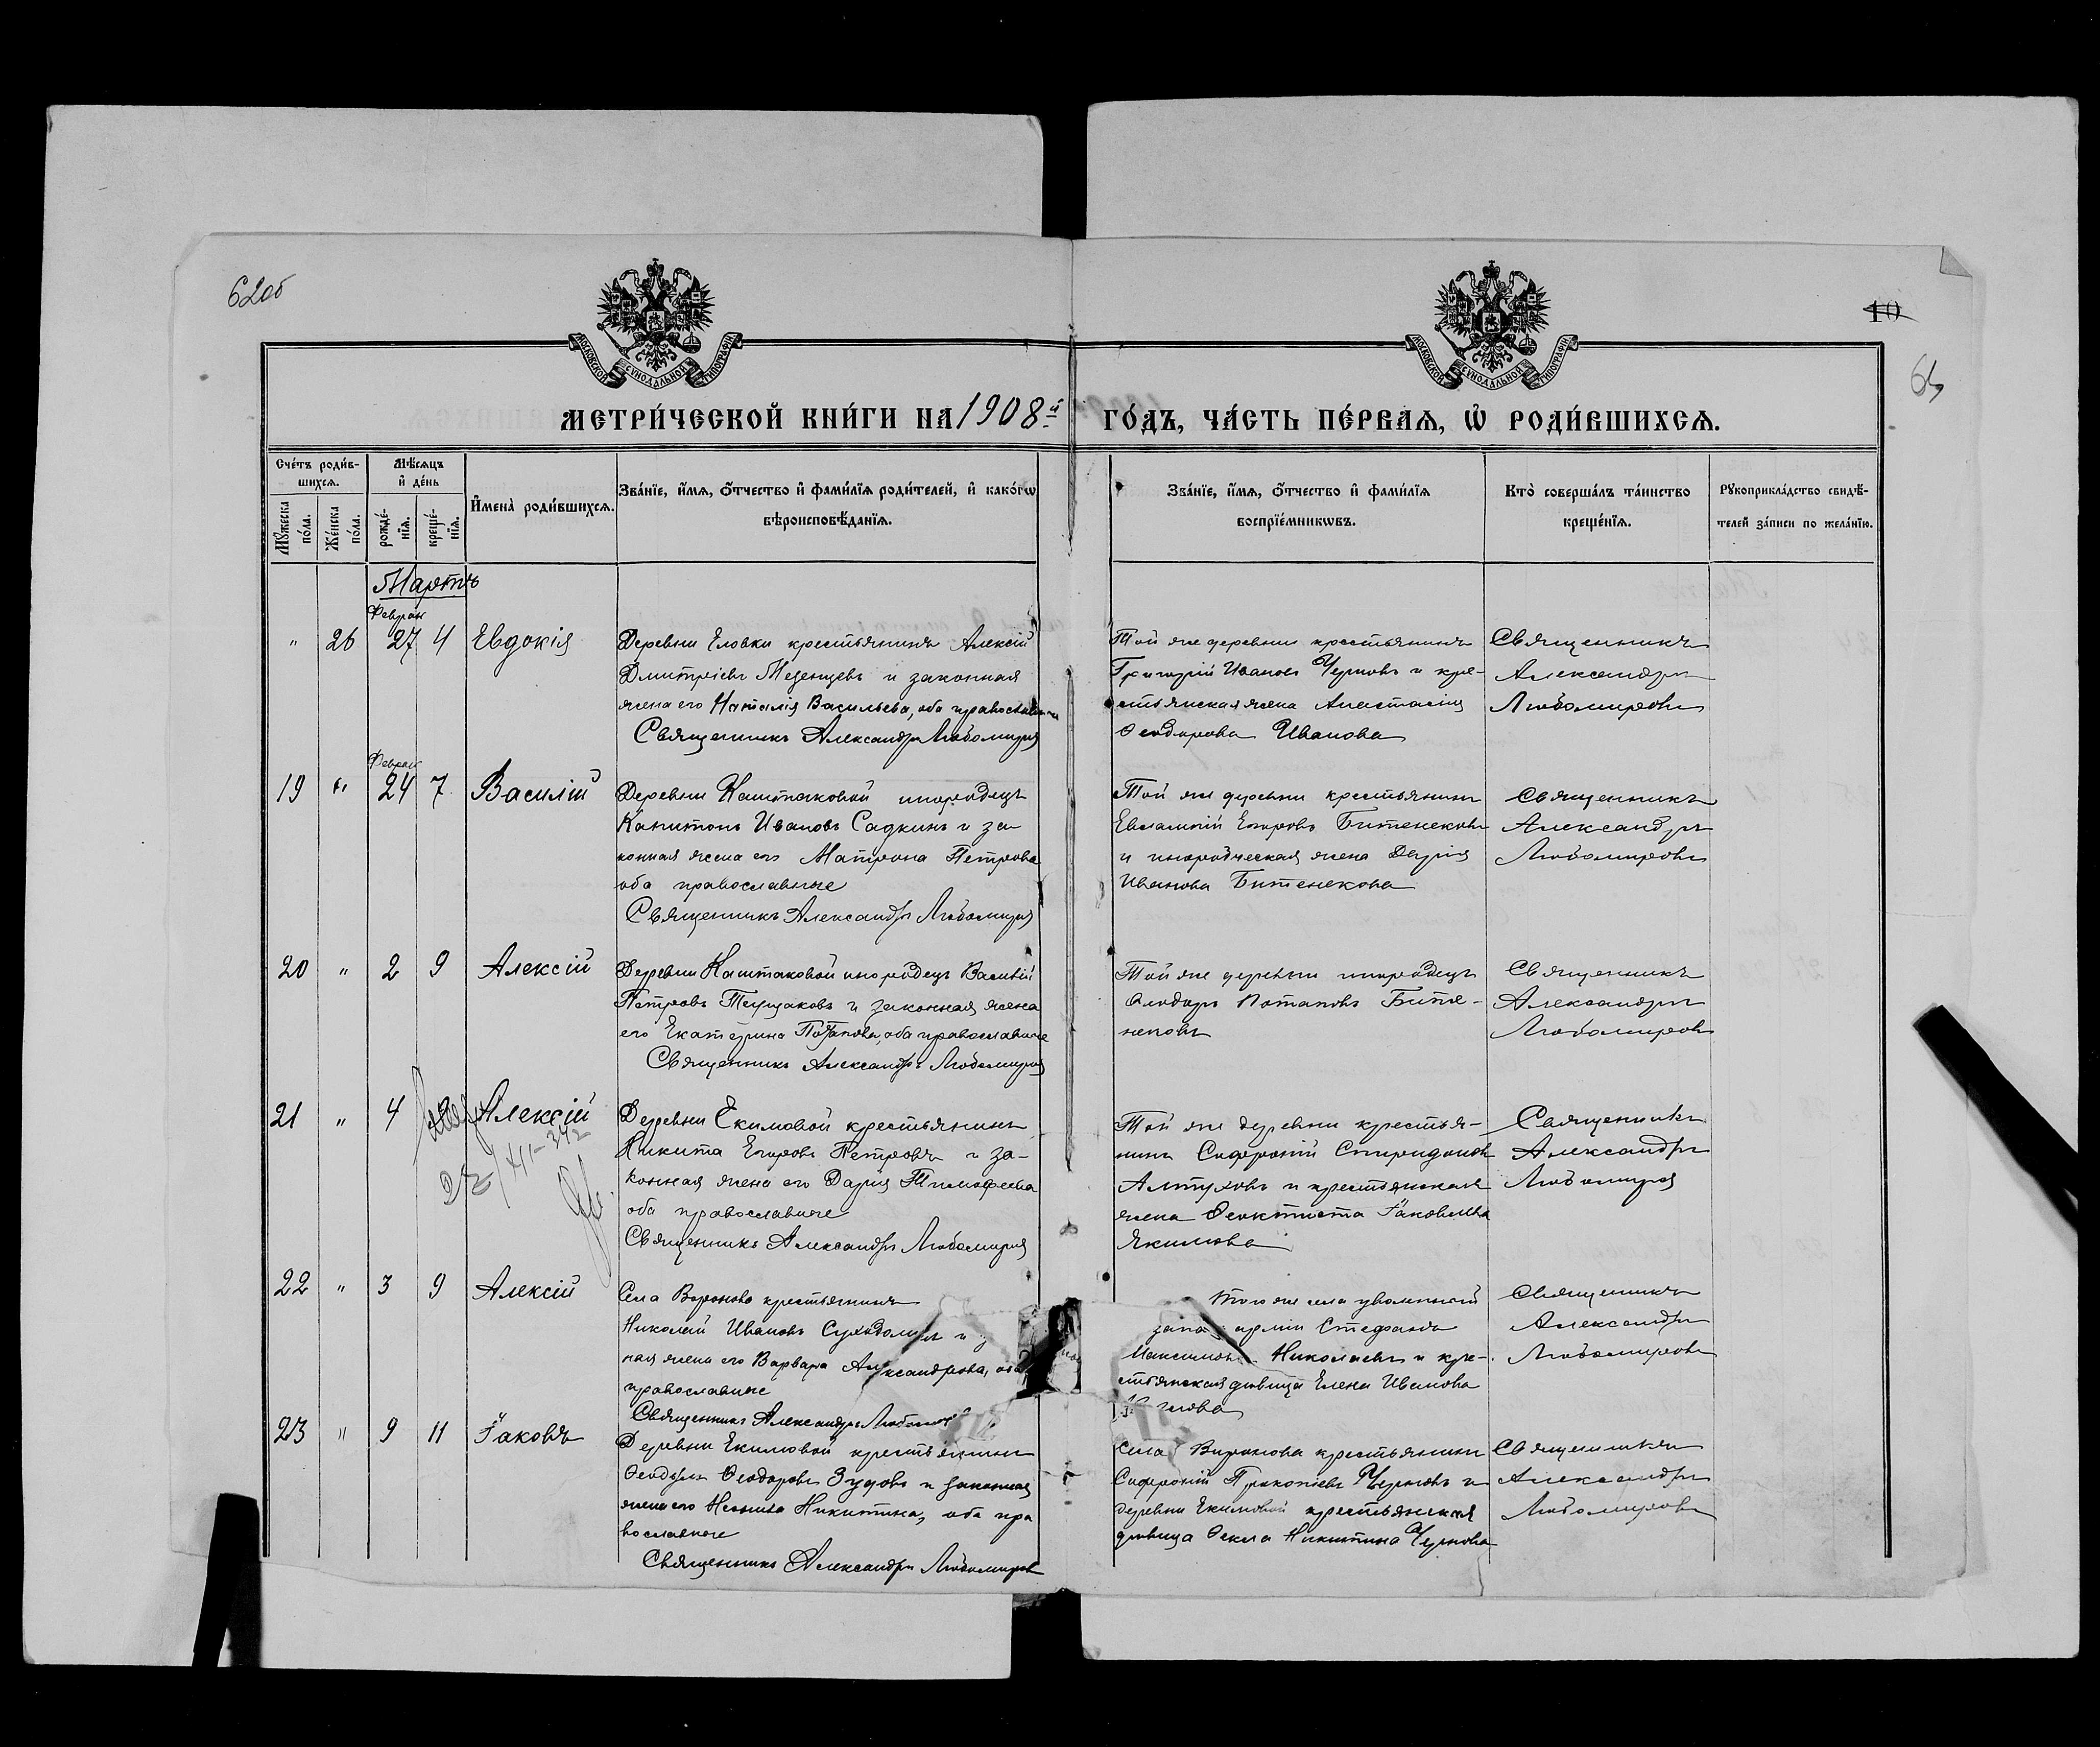 62об
10
63
МОСКОВСКОЙ СѴНОДАЛЬНОЙ ТИПОГРАФІИ
МОСКОВСКОЙ СѴНОДАЛЬНОЙ ТИПОГРАФІИ
МЕТРИ́ЧЕСКОЙ КНИ́ГИ НА 1908й ГО́ДЪ, ЧА́СТЬ ПЕ́РВАЯ, Ѡ҆ РОДИ́ВШИХСѦ.
Сче́тъ роди́в-
шихсѧ.
Мꙋ́жеска по́ла.
Же́нска по́ла.
Мѣ́сѧцъ
и҆ де́нь
рожде́-
нїѧ.
креще́-
нїѧ.
И҆мена̀ роди́вшихсѧ.
Зва́нїе, и҆́мѧ, ѻ҆́тчество и҆ фами́лїѧ роди́телей, и҆ како́гѡ
вѣроисповѣ́данїѧ.
Зва́нїе, и҆́мѧ, ѻ҆́тчество и҆ фами́лїѧ
воспрїе́мникѡвъ.
Кто̀ соверша́лъ та́инство
креще́нїѧ.
Рꙋкоприкла́дство свидѣ́-
телей за́писи по жела́нїю.
Мартъ
Феврал
" 26 27 4 Евдокія
Деревни Еловки крестьянинъ Алексій
Дмитріевъ Мезенцевъ и законная
жена его Наталія Васильева, оба православные
Священникъ Александръ Любомировъ
Той же деревни крестьянинъ
Григорій Ивановъ Черновъ и кре-
стьянская жена Анастасія
Ѳеодорова Иванова
Священникъ
Александръ
Любомировъ
Феврал
19 " 24 7 Василій
Деревни Каштаковой инородецъ
Капитонъ Ивановъ Садкинъ и за-
конная жена его Матрона Петрова
оба православные
Священникъ Александръ Любомировъ
Той же деревни крестьянинъ
Евлампій Егоровъ Битенековъ
и инородческая жена Дарія
Иванова Битенекова
Священникъ
Александръ
Любомировъ
20 " 2 9 Алексій
Деревни Каштаковой инородецъ Василій
Петровъ и законная жена
его Екатерина Потапова, оба православные
Священникъ Александръ Любомировъ
Той же деревни инородецъ
Ѳеодоръ Потаповъ Бите-
нековъ
Священникъ
Александръ
Любомировъ
21 " 4 Алексій
Деревни Екимовой крестьянинъ
Никита Егоровъ Петровъ и за-
конная жена его Дарія Тимофеева
оба православные
Священникъ Александръ Любомировъ
Той же деревни крестья-
нинъ Софроній Спиридоновъ
Алтуховъ и крестьянская
жена Ѳеоктиста Іаковлева
Якимова
Священникъ
Александръ
Любомировъ
22 " 3 9 Алексій
Села Вороново крестьянинъ
Николай Ивановъ и з
ная жена его Варвара Александрова, оба
православные
Священникъ Александръ Любомиров
Того же села уволенный
запа арміи Стефанъ
Максимов Николаевъ и кре-
стьянская дѣвица Елена Иванова
Священникъ
Александръ
Любомировъ
23 " 9 11 Іаковъ
Деревни Екимовой крестьянинъ
Ѳеодоръ Ѳеодоровъ Зудовъ и законная
жена его Никитина, оба пра
вославные
Священникъ Александръ Любомировъ
Села Воронова крестьянинъ
Софроній Прокопіевъ Черновъ и
деревни Екимовой крестьянская
дѣвица Ѳекла Никитина Чернова
Священникъ
Александръ
Любомировъ